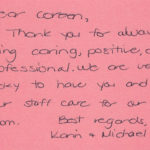 ear Coreen,
Thank you for alway
ing caring, positive, a
rofessional. We are ve
cky to have you and
ur staff care for our
om. Best regards,
Karin & Michael